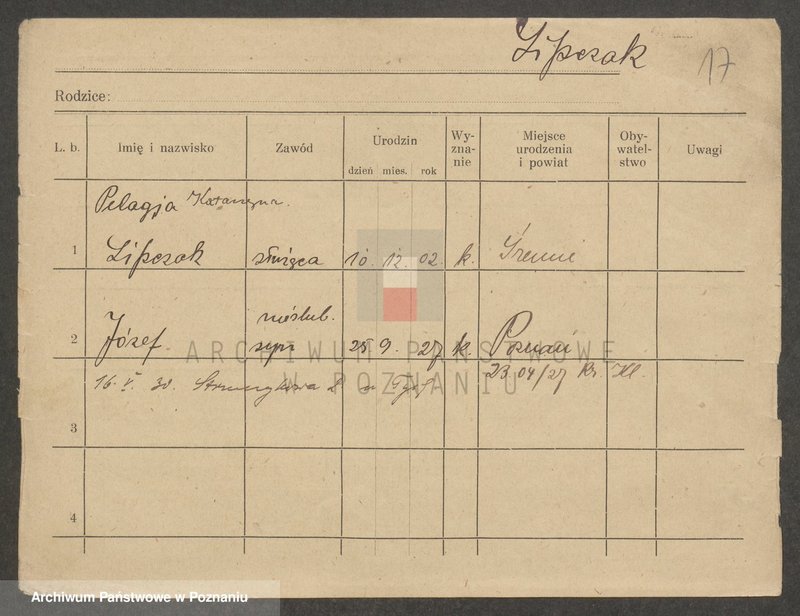 Lipczak
17
Rodzice:
L. b. Imię i nazwisko Zawód Urodzin dzień mies. rok Wy-zna-nie Miejsce urodzenia i powiat Oby-watel-stwo Uwagi
Pelagja Katarzyna.
1 Lipczak służąca 10. 12. 02. k.
nieślub.
2 Józef syn 25 9. 27 k.
ARCHIWUM PAŃSTWOWE
W POZNANIU
16. V. 30.
23 04/27 Kr. Kl.
3
4
Archiwum Państwowe w Poznaniu